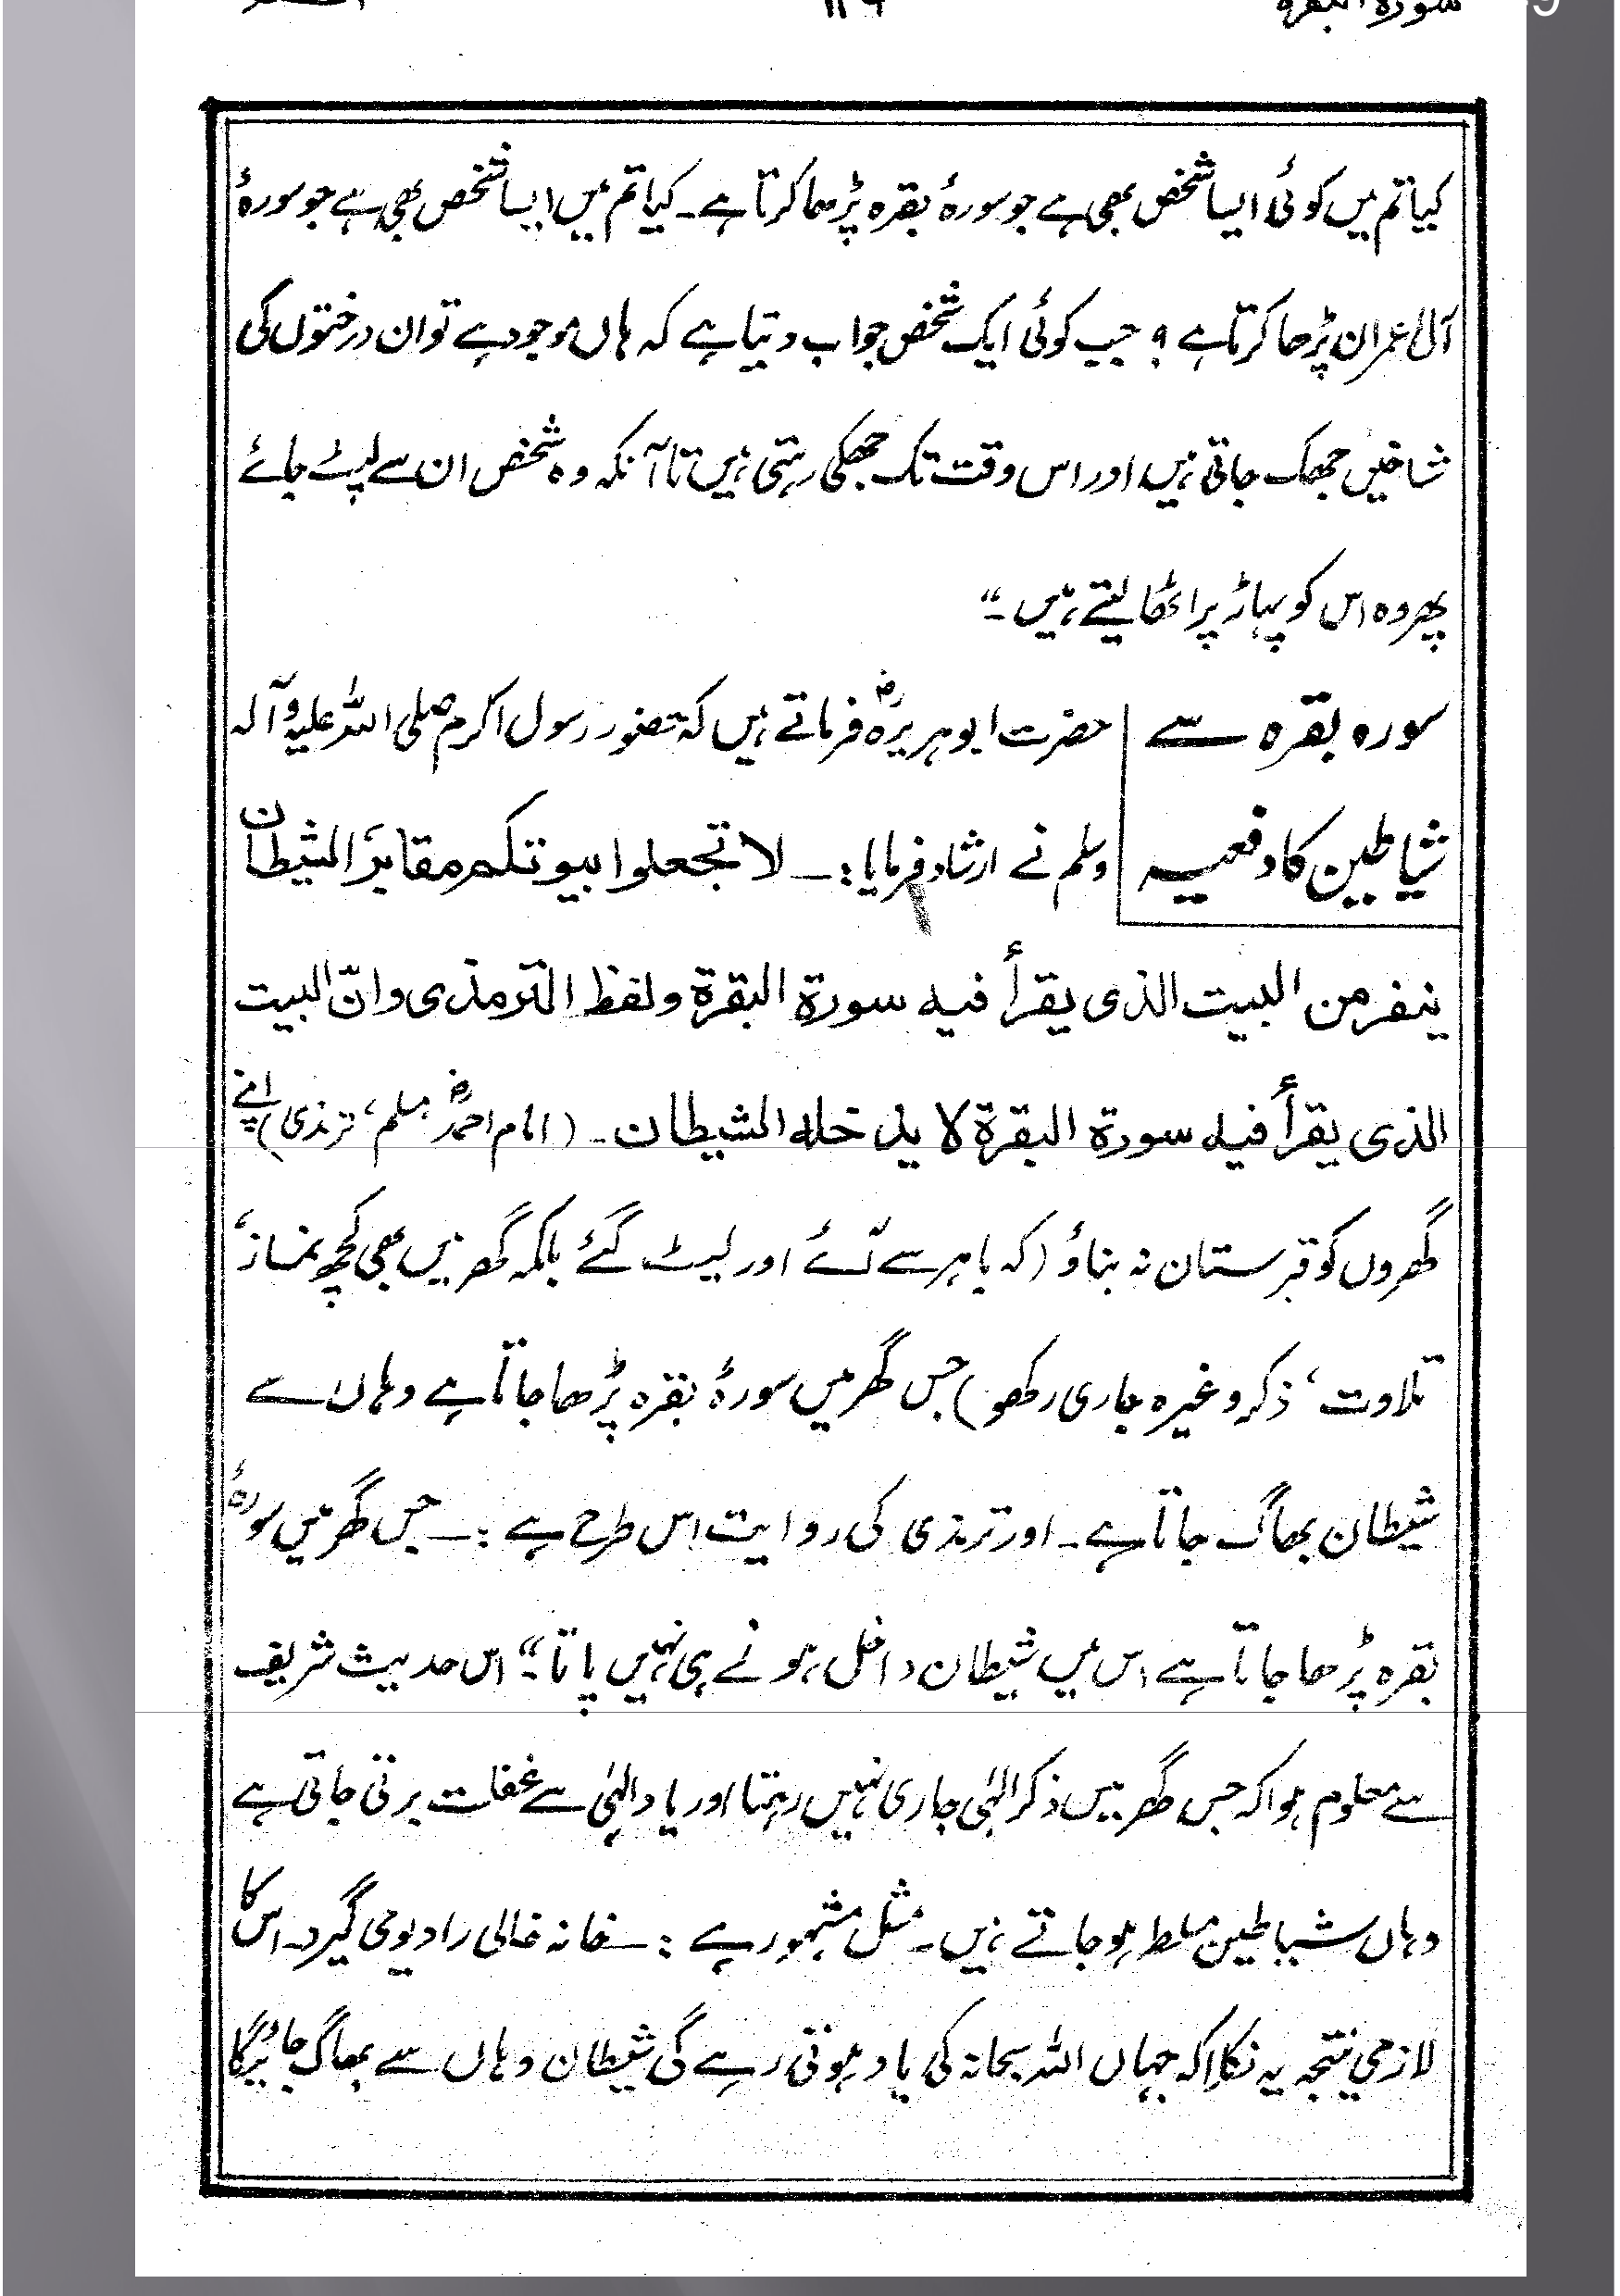 سورۃ البقرہ
کیا تم میں کوئی ایسا شخص بھی ہے جو سورۂ بقرہ پڑھا کرتا ہے۔ کیا تم میں ایسا شخص بھی ہے جو سورۂ
آل عمران پڑھا کرتا ہے ؟ جب کوئی ایک شخص جواب دیتا ہے کہ ہاں موجود ہے تو ان درختوں کی
شاخیں جھک جاتی ہیں اور اس وقت تک جھکی رہتی ہیں تا آنکہ وہ شخص ان سے لپٹ جائے
پھر وہ اس کو پہاڑ پر اٹھا لیتے ہیں۔“
سورہ بقرہ سے
شیاطین کا دفعیہ
حضرت ابوہریرہؓ فرماتے ہیں کہ حضور رسول اکرم صلی اللہ علیہ وآلہ
وسلم نے ارشاد فرمایا :۔ لا تجعلوا بیوتکم مقابرَ الشیطان
ینفر من البیت الذی یقرأ فیہ سورة البقرة ولفظ الترمذی وانّ البیت
الذی یقرأ فیہ سورة البقرة لا یدخلہ الشیطان۔ (امام احمدؒ، مسلم، ترمذی) اپنے
گھروں کو قبرستان نہ بناؤ (کہ باہر سے آئے اور لیٹ گئے بلکہ گھر میں بھی کچھ نماز،
تلاوت، ذکر وغیرہ جاری رکھو) جس گھر میں سورۂ بقرہ پڑھا جاتا ہے وہاں سے
شیطان بھاگ جاتا ہے۔ اور ترمذی کی روایت اس طرح ہے :۔ جس گھر میں سورۂ
بقرہ پڑھا جاتا ہے اس میں شیطان داخل ہونے ہی نہیں پاتا۔“ اس حدیث شریف
سے معلوم ہوا کہ جس گھر میں ذکر الٰہی جاری نہیں رہتا اور یاد الٰہی سے غفلت برتی جاتی ہے
وہاں شیاطین مسلط ہو جاتے ہیں۔ مثل مشہور ہے :۔ خانہ خالی را دیو می گیرد۔ اس کا
لازمی نتیجہ یہ نکلا کہ جہاں اللہ سبحانہ کی یاد ہوتی رہے گی شیطان وہاں سے بھاگ جائیگا